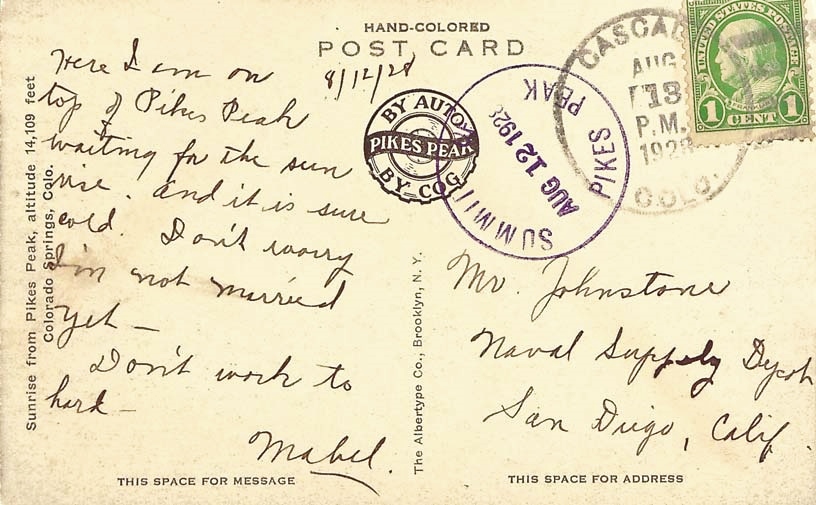 HAND-COLORED
POST CARD
8/12/28
Here I am on
top of Pikes Peak
waiting for the sun
rise. and it is sure
cold. Don't worry
I'm not married
yet —
Don't work to
hard —
Mabel.
THIS SPACE FOR MESSAGE
Sunrise from Pikes Peak, altitude 14,109 feet
Colorado Springs, Colo.
BY AUTO
PIKES PEAK
BY COG
SUMMIT
PIKES PEAK
AUG 12 1928
CASCADE
AUG
13
P.M.
1928
COLO.
UNITED STATES POSTAGE
1 CENT 1
The Albertype Co., Brooklyn, N. Y.
Mr. Johnstone
Naval Supply Depot
San Diego, Calif.
THIS SPACE FOR ADDRESS